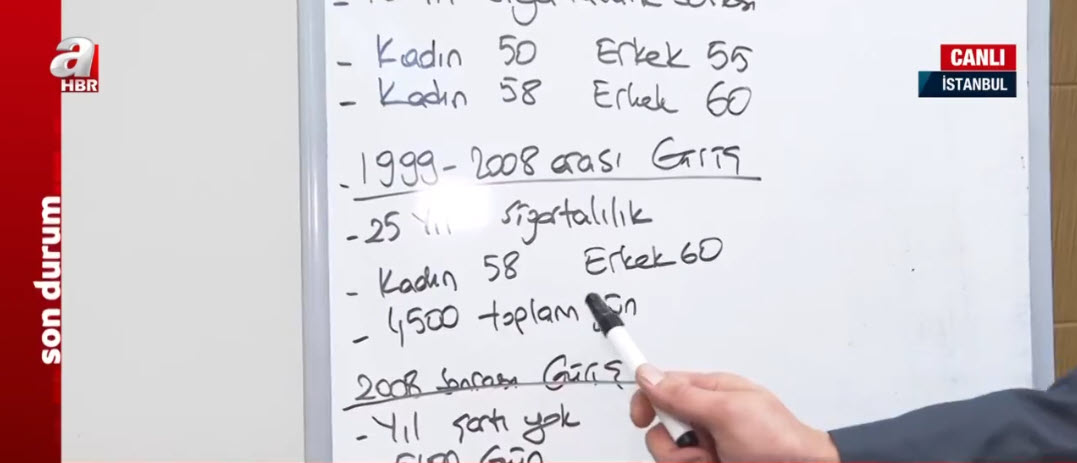 a
HBR
son durum
CANLI
İSTANBUL
- Kadın 50 Erkek 55
- Kadın 58 Erkek 60
- 1999-2008 arası Giriş
- 25 Yıl Sigortalılık
- Kadın 58 Erkek 60
- 4500 toplam gün
2008 Sonrası Giriş
- Yıl şartı yok
Gün